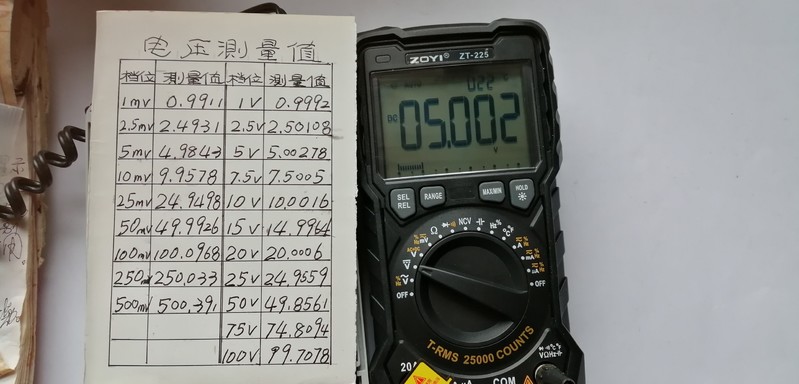 电压測量值
档位 測量值 档位 測量值
1mv 0.9911 1V 0.9992
2.5mv 2.4931 2.5V 2.50108
5mv 4.9843 5V 5.00278
10mv 9.9578 7.5V 7.5005
25mv 24.9498 10V 10.0016
50mv 49.9926 15V 14.9964
100mv 100.0968 20V 20.0006
250m 250.033 25V 24.9559
500mv 500.391 50V 49.8561
75V 74.8094
100V 99.7078
ZOYI ZT-225
022
DC 05.002
V
SEL REL
RANGE
MAX/MIN
HOLD
NCV
Hz%
Ω
mV
°C°F
A
mA
μA
OFF
OFF
T-RMS 25000 COUNTS
20A
COM
VΩHz